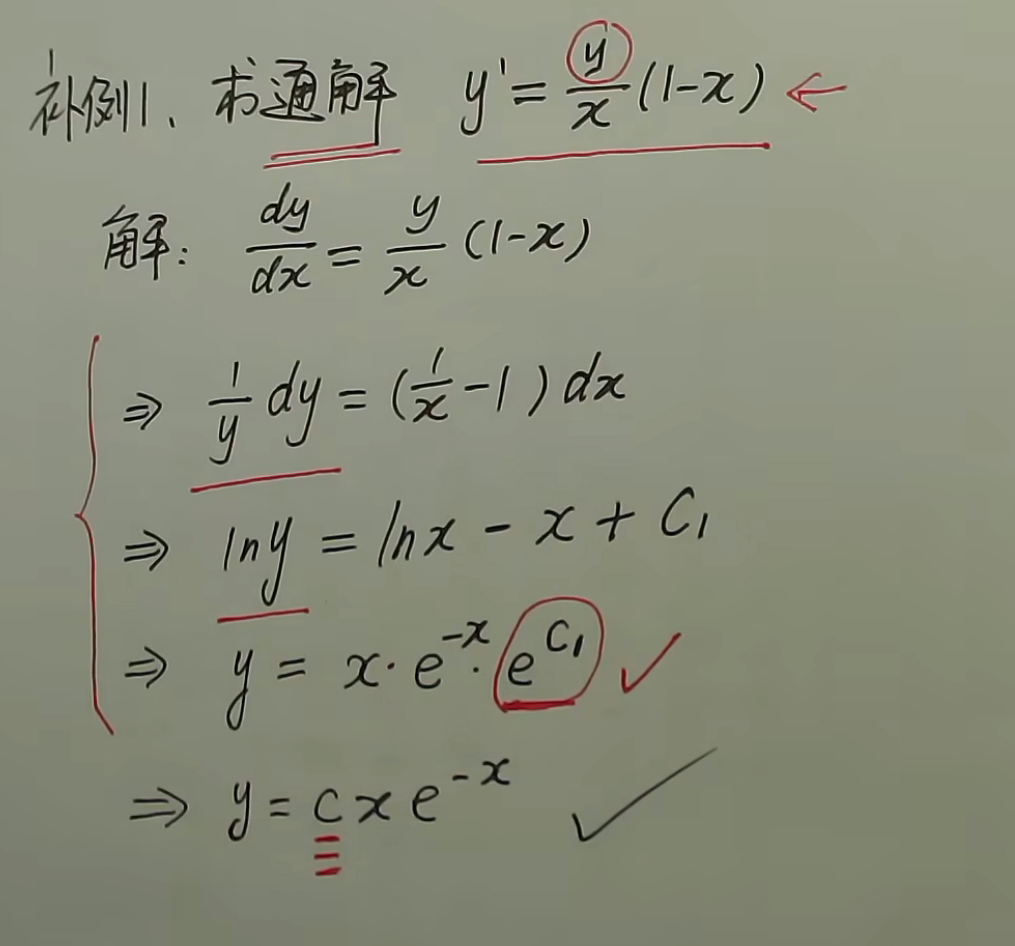 补例1、求通解 y' = y/x (1-x) ←
解: dy/dx = y/x (1-x)
⇒ 1/y dy = (1/x - 1) dx
⇒ lny = lnx - x + C₁
⇒ y = x·e^{-x}·e^{C₁} ✓
⇒ y = c x e^{-x} ✓